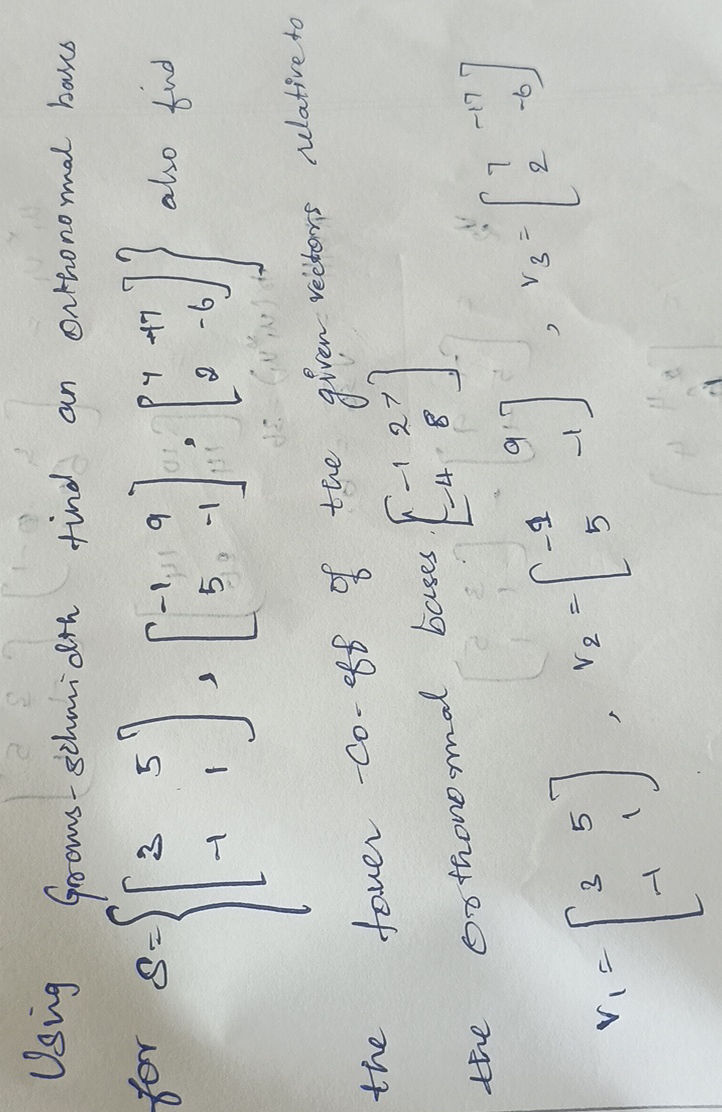 Using Grams-schmidth find an orthonormal bases
for S = { [ 3 5 -1 1 ] , [ -1 9 5 -1 ] , [ 7 -17 2 -6 ] } also find
the fouer co-eff of the given vectors relative to
the orthonormal bases. [ -1 27 -4 8 ]
v1 = [ 3 5 -1 1 ] , v2 = [ -1 9 5 -1 ] , v3 = [ 7 -17 2 -6 ]